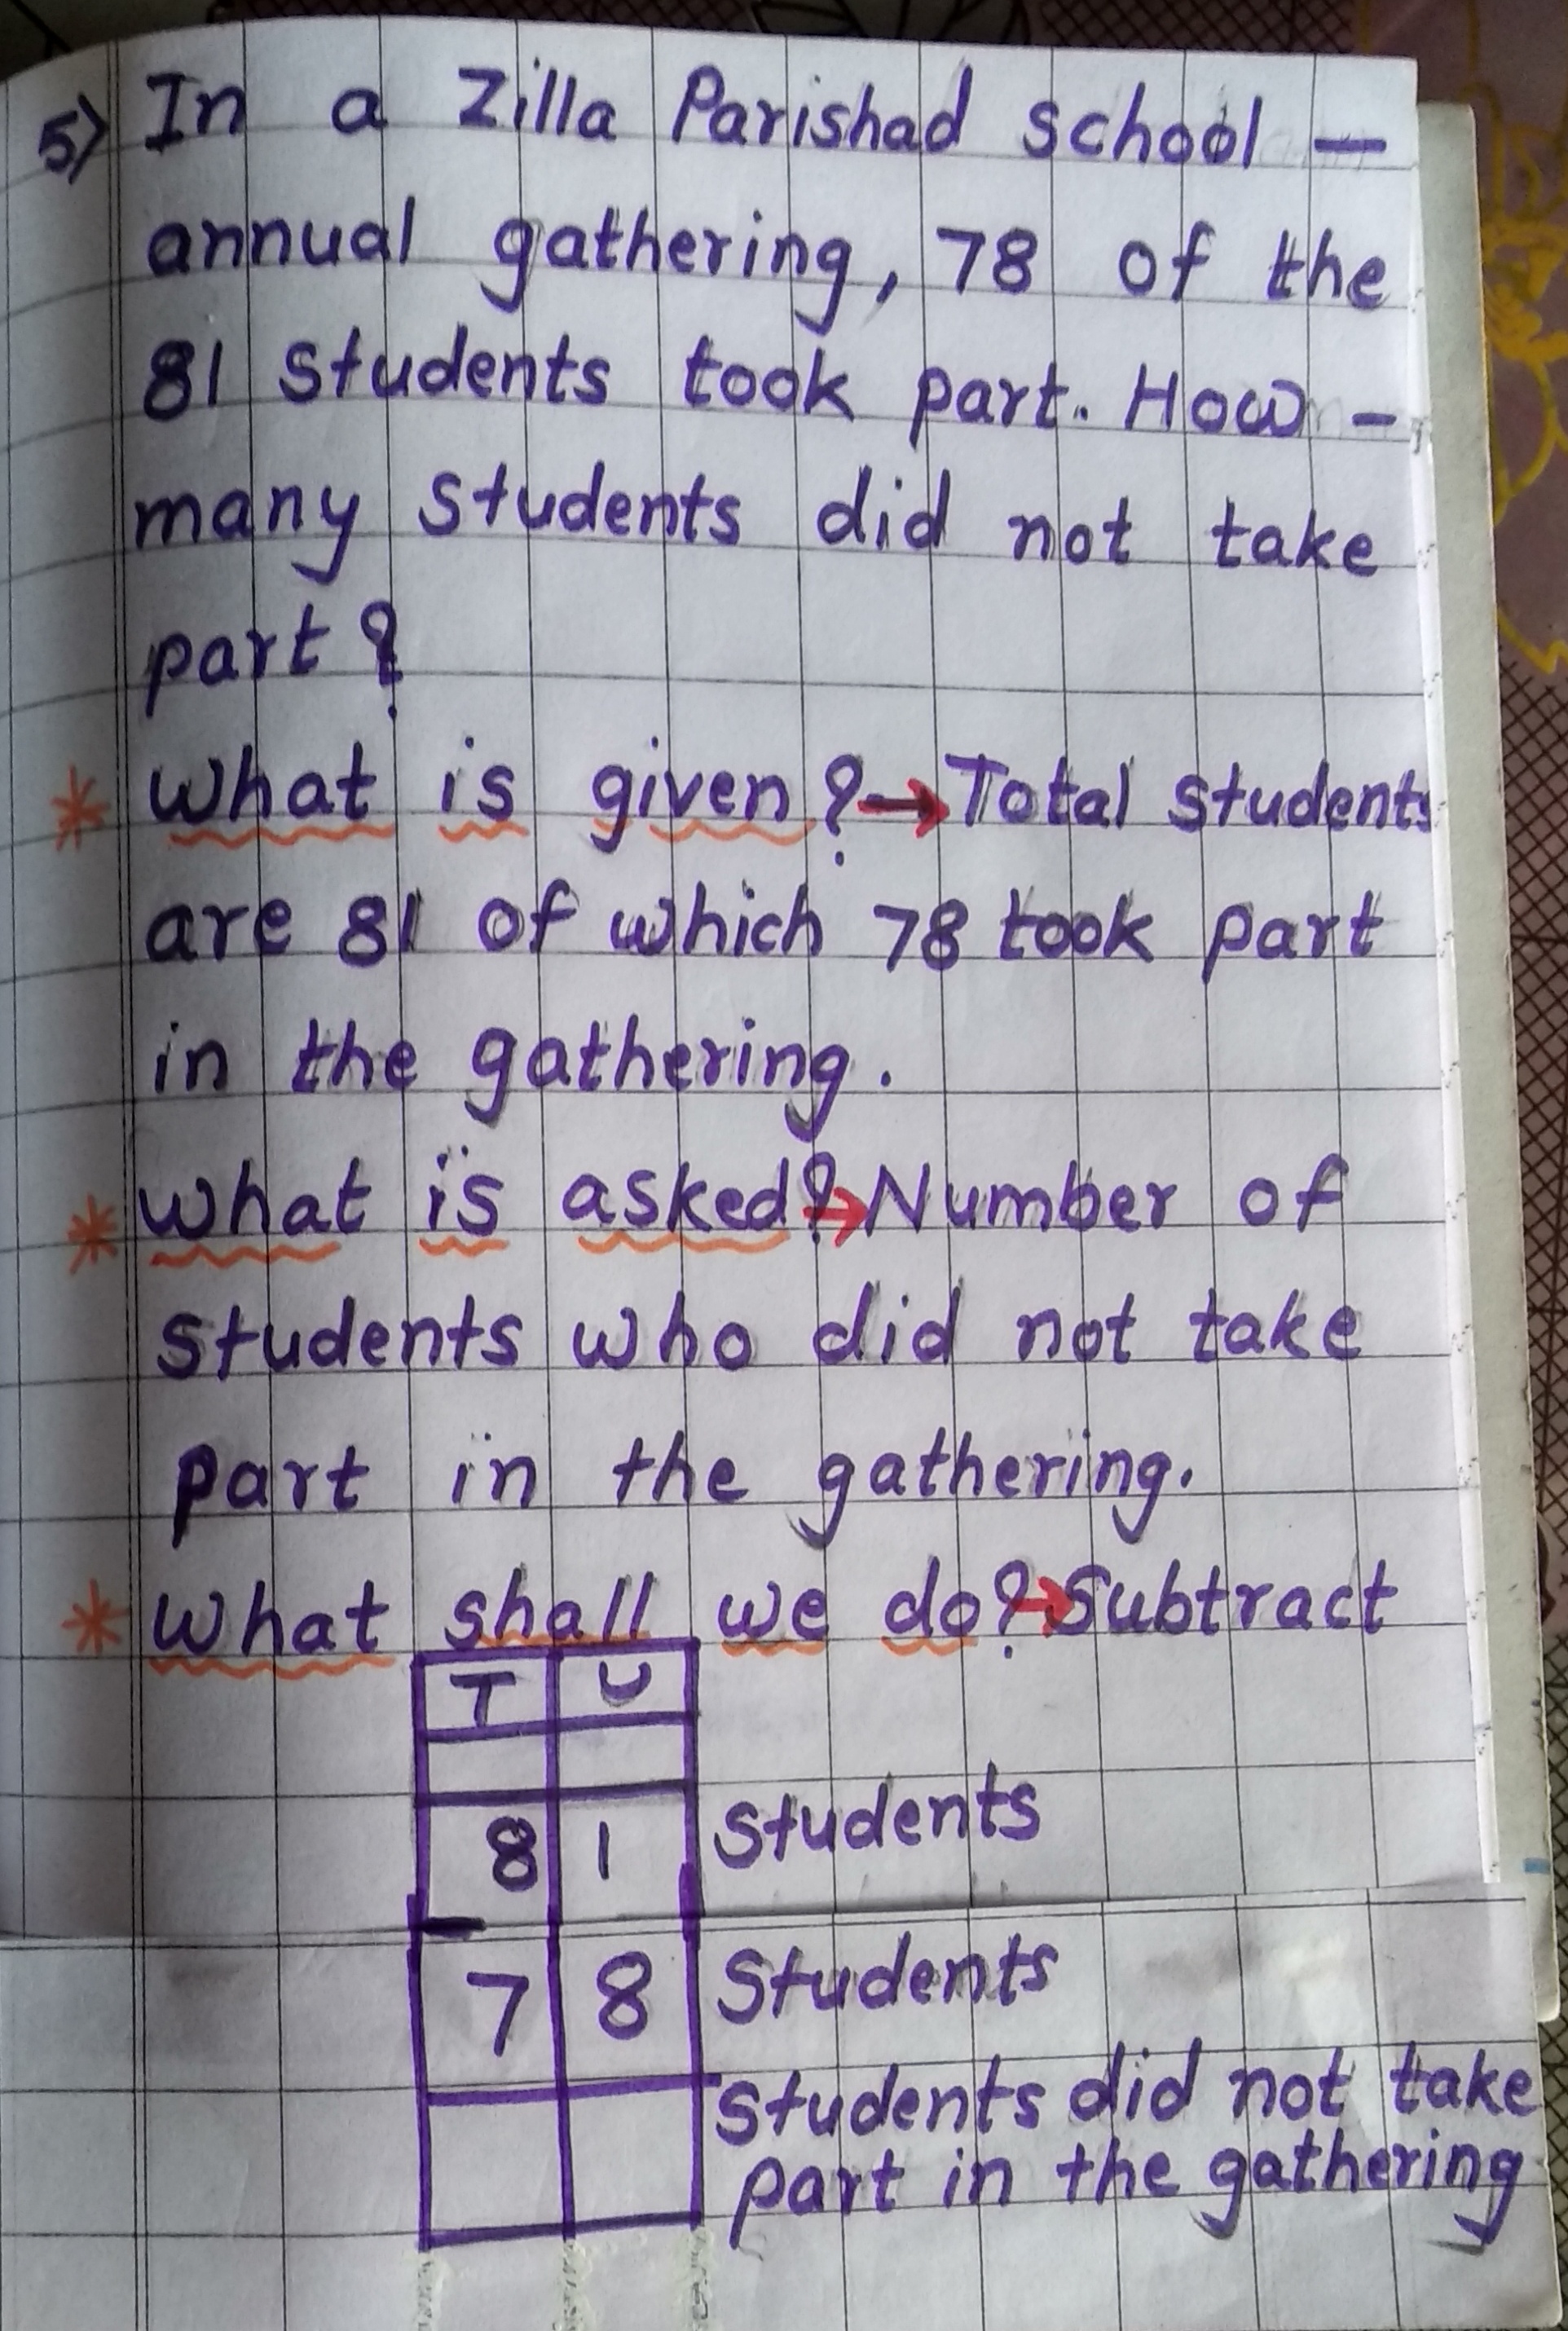 5) In a Zilla Parishad school —
annual gathering, 78 of the
81 students took part. How -
many students did not take
part?
* What is given? → Total students
are 81 of which 78 took part
in the gathering.
* What is asked? → Number of
students who did not take
part in the gathering.
* What shall we do? → Subtract
T U
8 1 Students
—
7 8 Students
Students did not take
part in the gathering